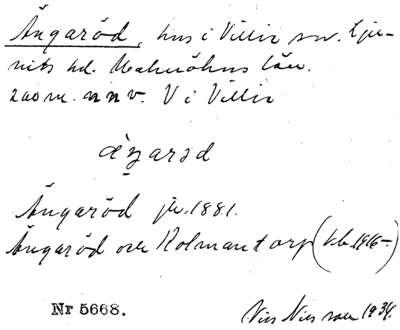 Ängaröd, hus i Villie sn. Lju-
nits hd. Malmöhus län.
200 m. n n v. V i Villie
Ängaröd jr. 1881.
Ängaröd och Kolmantorp (kb. 1916-)
Nr 5668.
Nils Nilsson 1934.